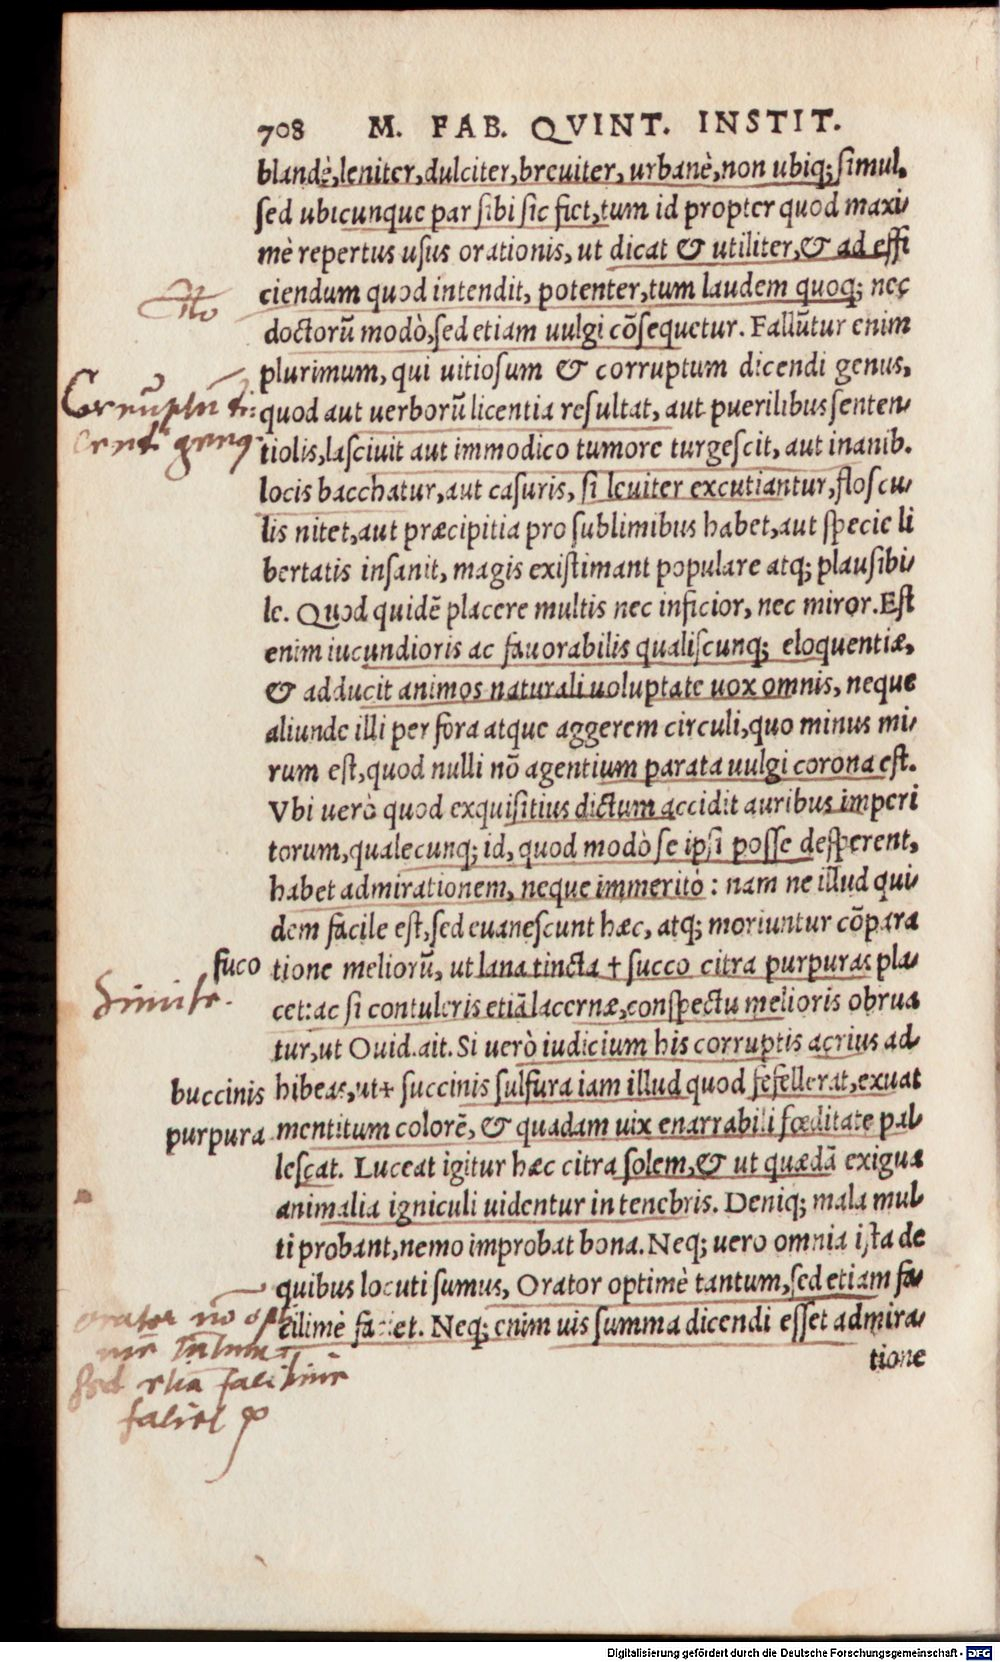 708 M. FAB. QVINT. INSTIT.
blandè, leniter, dulciter, breuiter, urbanè, non ubiq; simul,
sed ubicunque par sibi sic fiet, tum id propter quod maxi-
mè repertus usus orationis, ut dicat & utiliter, & ad effi
ciendum quod intendit, potenter, tum laudem quoq; nec
doctorũ modò, sed etiam uulgi cõsequetur. Fallũtur enim
plurimum, qui uitiosum & corruptum dicendi genus,
Corruptũ di-
quod aut uerborũ licentia resultat, aut puerilibus senten-
cendi genus
tiolis, lasciuit aut immodico tumore turgescit, aut inanib.
locis bacchatur, aut casuris, si leuiter excutiantur, floscu-
lis nitet, aut præcipitia pro sublimibus habet, aut specie li
bertatis insanit, magis existimant populare atq; plausibi-
le. Quod quidẽ placere multis nec inficior, nec miror. Est
enim iucundioris ac fauorabilis qualiscunq; eloquentiæ,
& adducit animos naturali uoluptate uox omnis, neque
aliunde illi per fora atque aggerem circuli, quo minus mi-
rum est, quod nulli nõ agentium parata uulgi corona est.
Vbi uerò quod exquisitius dictum accidit auribus imperi
torum, qualecunq; id, quod modò se ipsi posse desperent,
habet admirationem, neque immeritò: nam ne illud qui-
dem facile est, sed euanescunt hæc, atq; moriuntur cõpara
fuco tione meliorũ, ut lana tincta † succo citra purpuras pla-
Simile.
cet: ac si contuleris etiã lacernæ, conspectu melioris obrua
tur, ut Ouid. ait. Si uerò iudicium his corruptis acrius ad-
buccinis hibeas, ut † succinis sulfura iam illud quod fefellerat, exuat
purpura mentitum colorẽ, & quadam uix enarrabili fœditate pal-
lescat. Luceat igitur hæc citra solem, & ut quædã exigua
animalia igniculi uidentur in tenebris. Deniq; mala mul-
ti probant, nemo improbat bona. Neq; uero omnia ista de
quibus locuti sumus, Orator optimè tantum, sed etiam fa-
cilimè faciet. Neq; enim uis summa dicendi esset admira-
tione
orator nõ opti
mẽ tantum
sed etiã facilime
faciet
Digitalisierung gefördert durch die Deutsche Forschungsgemeinschaft - DFG